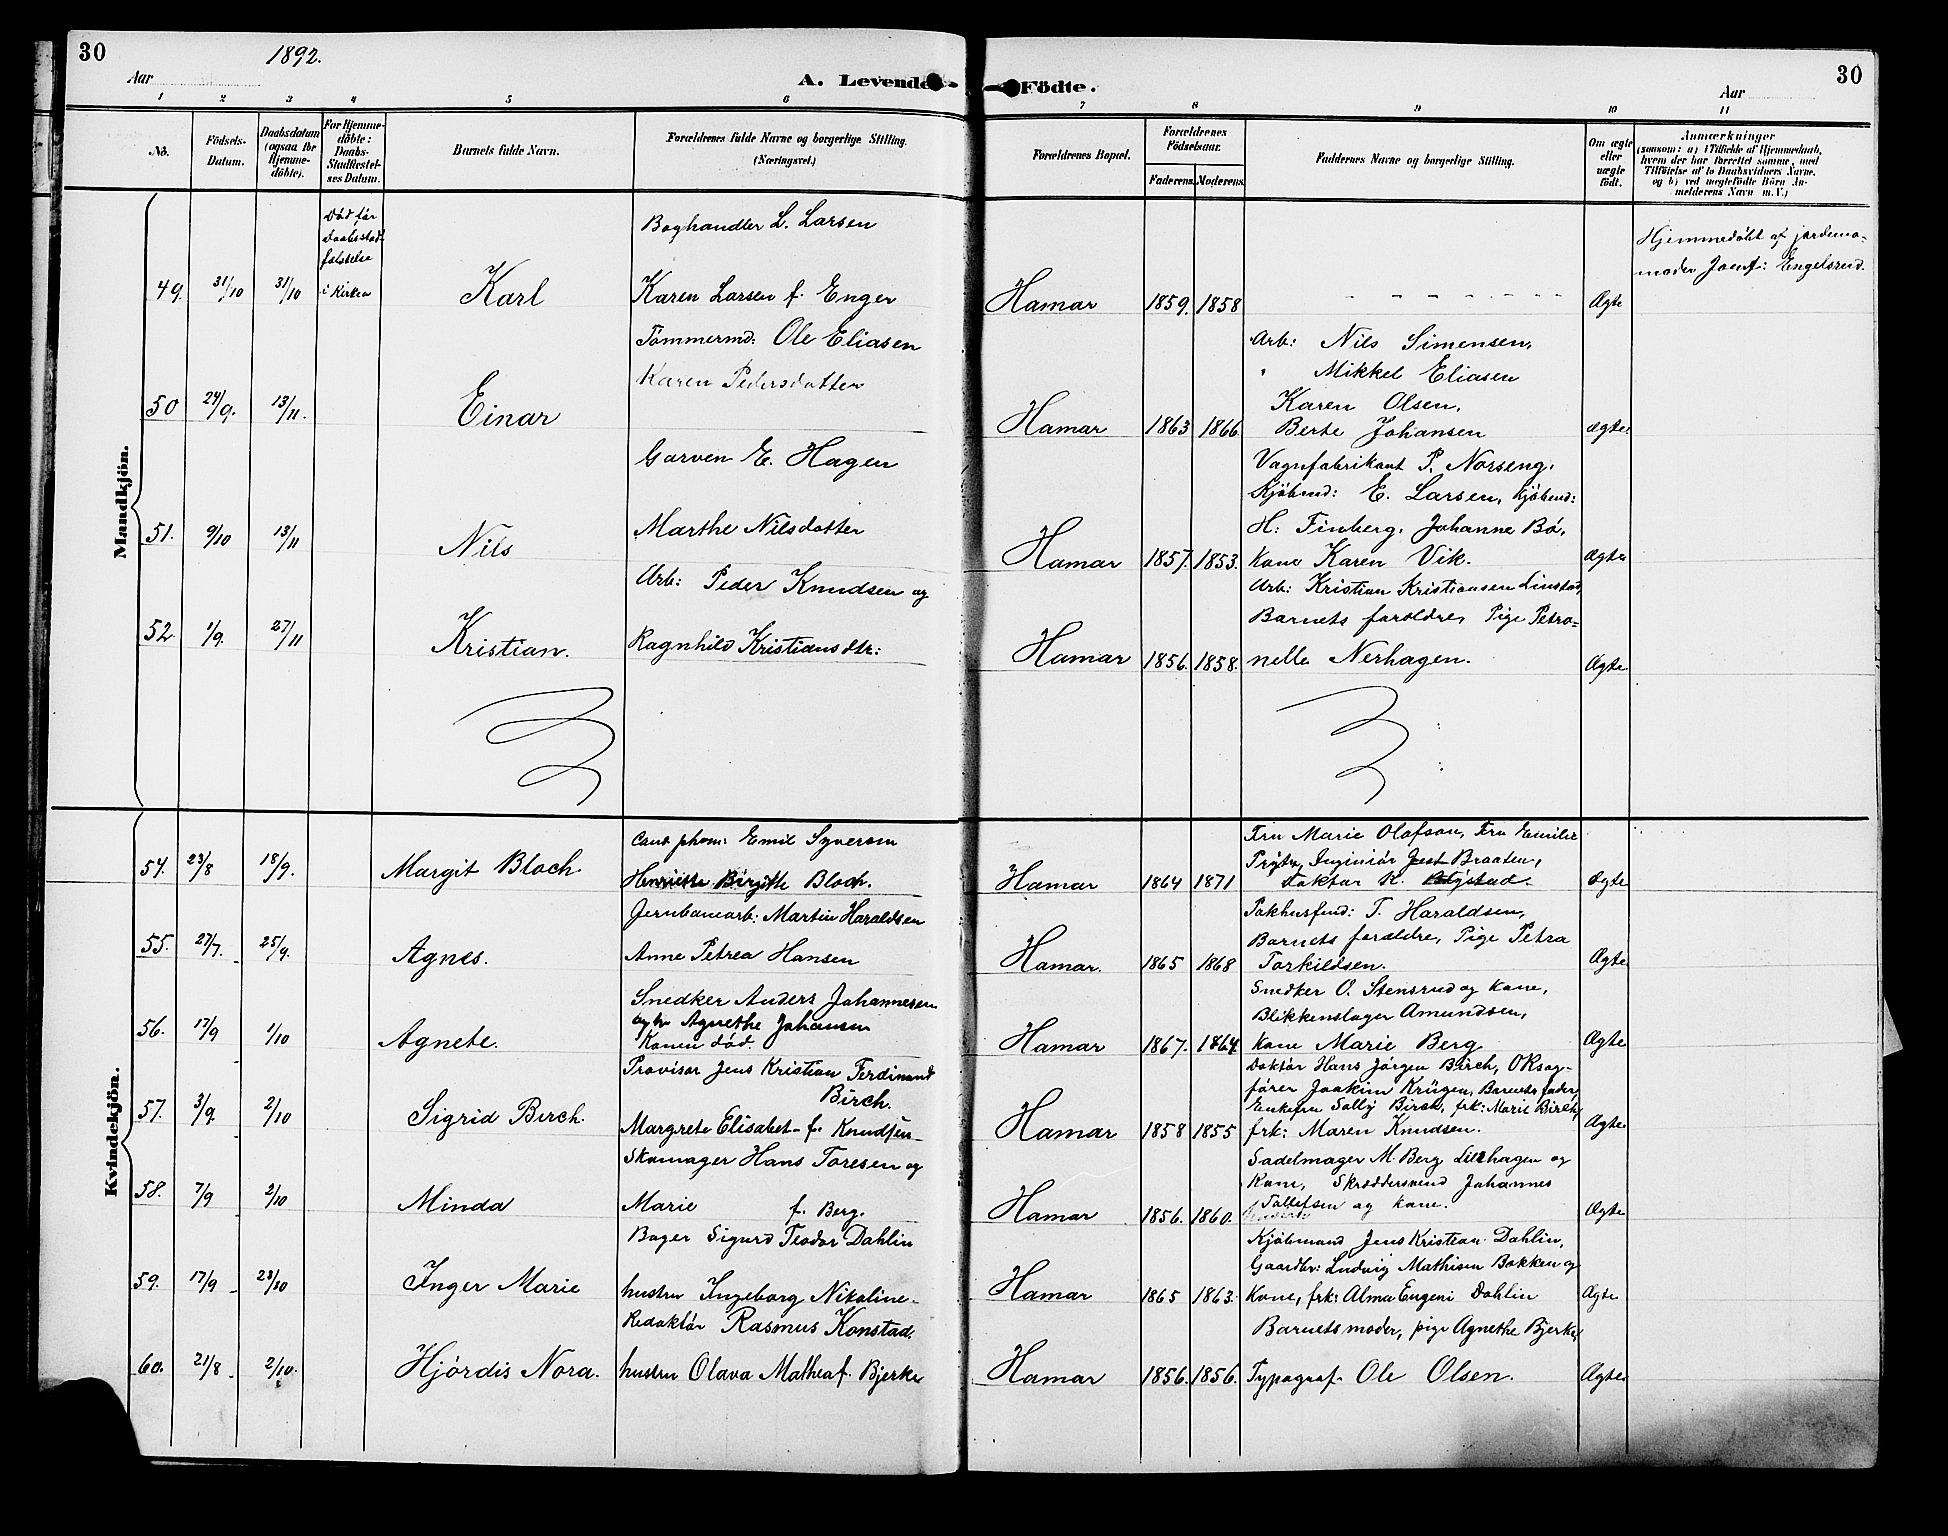 30
Aar 1892.
A. Levende
1 2 3 4 5 6
No.
Födsels-
Datum.
Daabsdatum
(ogsaa for
Hjemme-
döbte).
For Hjemme-
döbte:
Daabs-
Stadfæstel-
ses Datum.
Barnets fulde Navn.
Forældrenes fulde Navne og borgerlige Stilling.
(Næringsvei.)
Födte.
30
Aar
7 8 9 10 11
Forældrenes Bopæl.
Forældrenes
Födselsaar.
Faderens. Moderens.
Faddernes Navne og borgerlige Stilling.
Om ægte
eller
uægte
födt.
Anmærkninger
(saasom: a) i Tilfælde af Hjemmedaab,
hvem der har forrettet samme, med
Tilföielse af to Daabsvidners Navne,
og b) ved uægtefödte Börn An-
melderens Navn m. V.)
Mandkjön.
49. 31/10 31/10
Död för
Daabsstad-
fæstelse
i Kirken
Karl
Boghandler L. Larsen
Karen Larsen f. Enger
Hamar 1859. 1858
- - - - - - - -
Ægte
Hjemmedöbt af jordemo-
moder Engelsrud.
50 24/9. 13/11.
Einar
Tömmermd: Ole Eliasen
Karen Pedersdatter
Hamar 1863 1866.
Arb: Nils Simensen,
" Mikkel Eliasen
Karen Olsen,
Berte Johansen
ægte.
51. 9/10 13/11
Nils
Garver E. Hagen
Marthe Nilsdatter
Hamar 1857. 1853.
Vognfabrikant P. Norseng.
Kjöbmd: E. Larsen, Kjöbmd:
H: Finberg. Johanne Bö,
kone Karen Vik.
Ægte
52. 1/9. 27/11
Kristian.
Arb: Peder Knudsen og
Ragnhild Kristiansdtr:
Hamar 1856. 1858.
Arb: Kristian Kristiansen Linstad,
Barnets foræeldre, Pige Petro-
nelle Nerhagen.
Ægte
Kvindekjön.
54. 23/8 18/9.
Margit Bloch.
Cand pharm: Emil Syversen
Henriette Birgitte Bloch.
Hamar 1864 1871
Fru Marie Olafson, Fru Emilie
Prÿtz, Ingeniör Just Braaten,
Doktor K.
Ægte
55. 27/7. 25/9.
Agnes.
Jernbanearb: Martin Haraldsen
Anne Petrea Hansen
Hamar. 1865 1868
Pakhusfuld: T. Haraldsen,
Barnets forældre, Pige Petra
Torkildsen.
Ægte
56. 17/9 1/10
Agnete.
Snedker Anders Johannesen
og hu Agnethe Johansen
Konen död.
Hamar 1867. 1864.
Snedker O. Stensrud og kone,
Blikkenslager Amundsen,
kone Marie Berg
Ægte
57. 3/9. 2/10
Sigrid Birch.
Provisor Jens Kristian Ferdinand
Birch.
Margrete Elisabet f. Knudsen
Hamar 1858 1855
Doktor Hans Jörgen Birch, OKsag-
förer Joakim Krügen, Barnets fader,
Enkefru Sally Birch, frk: Marie Birch,
frk: Maren Knudsen.
Ægte
58. 7/9 2/10
Minda
Skomager Hans Toresen og
Marie f. Berg.
Hamar 1856. 1860.
Sadelmager M. Berg Lillehagen og
Kone, Skræddersvend Johannes
Tollefsen og kone.
Ægte
59. 17/9 23/10
Inger Marie
Bager Sigurd Teodor Dahlin
hustru Ingeborg Nikoline
Hamar 1865 1863.
Kjöbmand Jens Kristian Dahlin,
Gaardbr: Ludvig Mathisen Bakken og
Kone, frk: Alma Eugeni Dahlin
Ægte
60. 21/8 2/10.
Hjördis Nora.
Redaktör Rasmus Konstad,
hustru Olava Mathea f. Bjerke
Hamar 1856. 1856.
Barnets moder, pige Agnethe Bjerke,
Typograf Ole Olsen.
Ægte